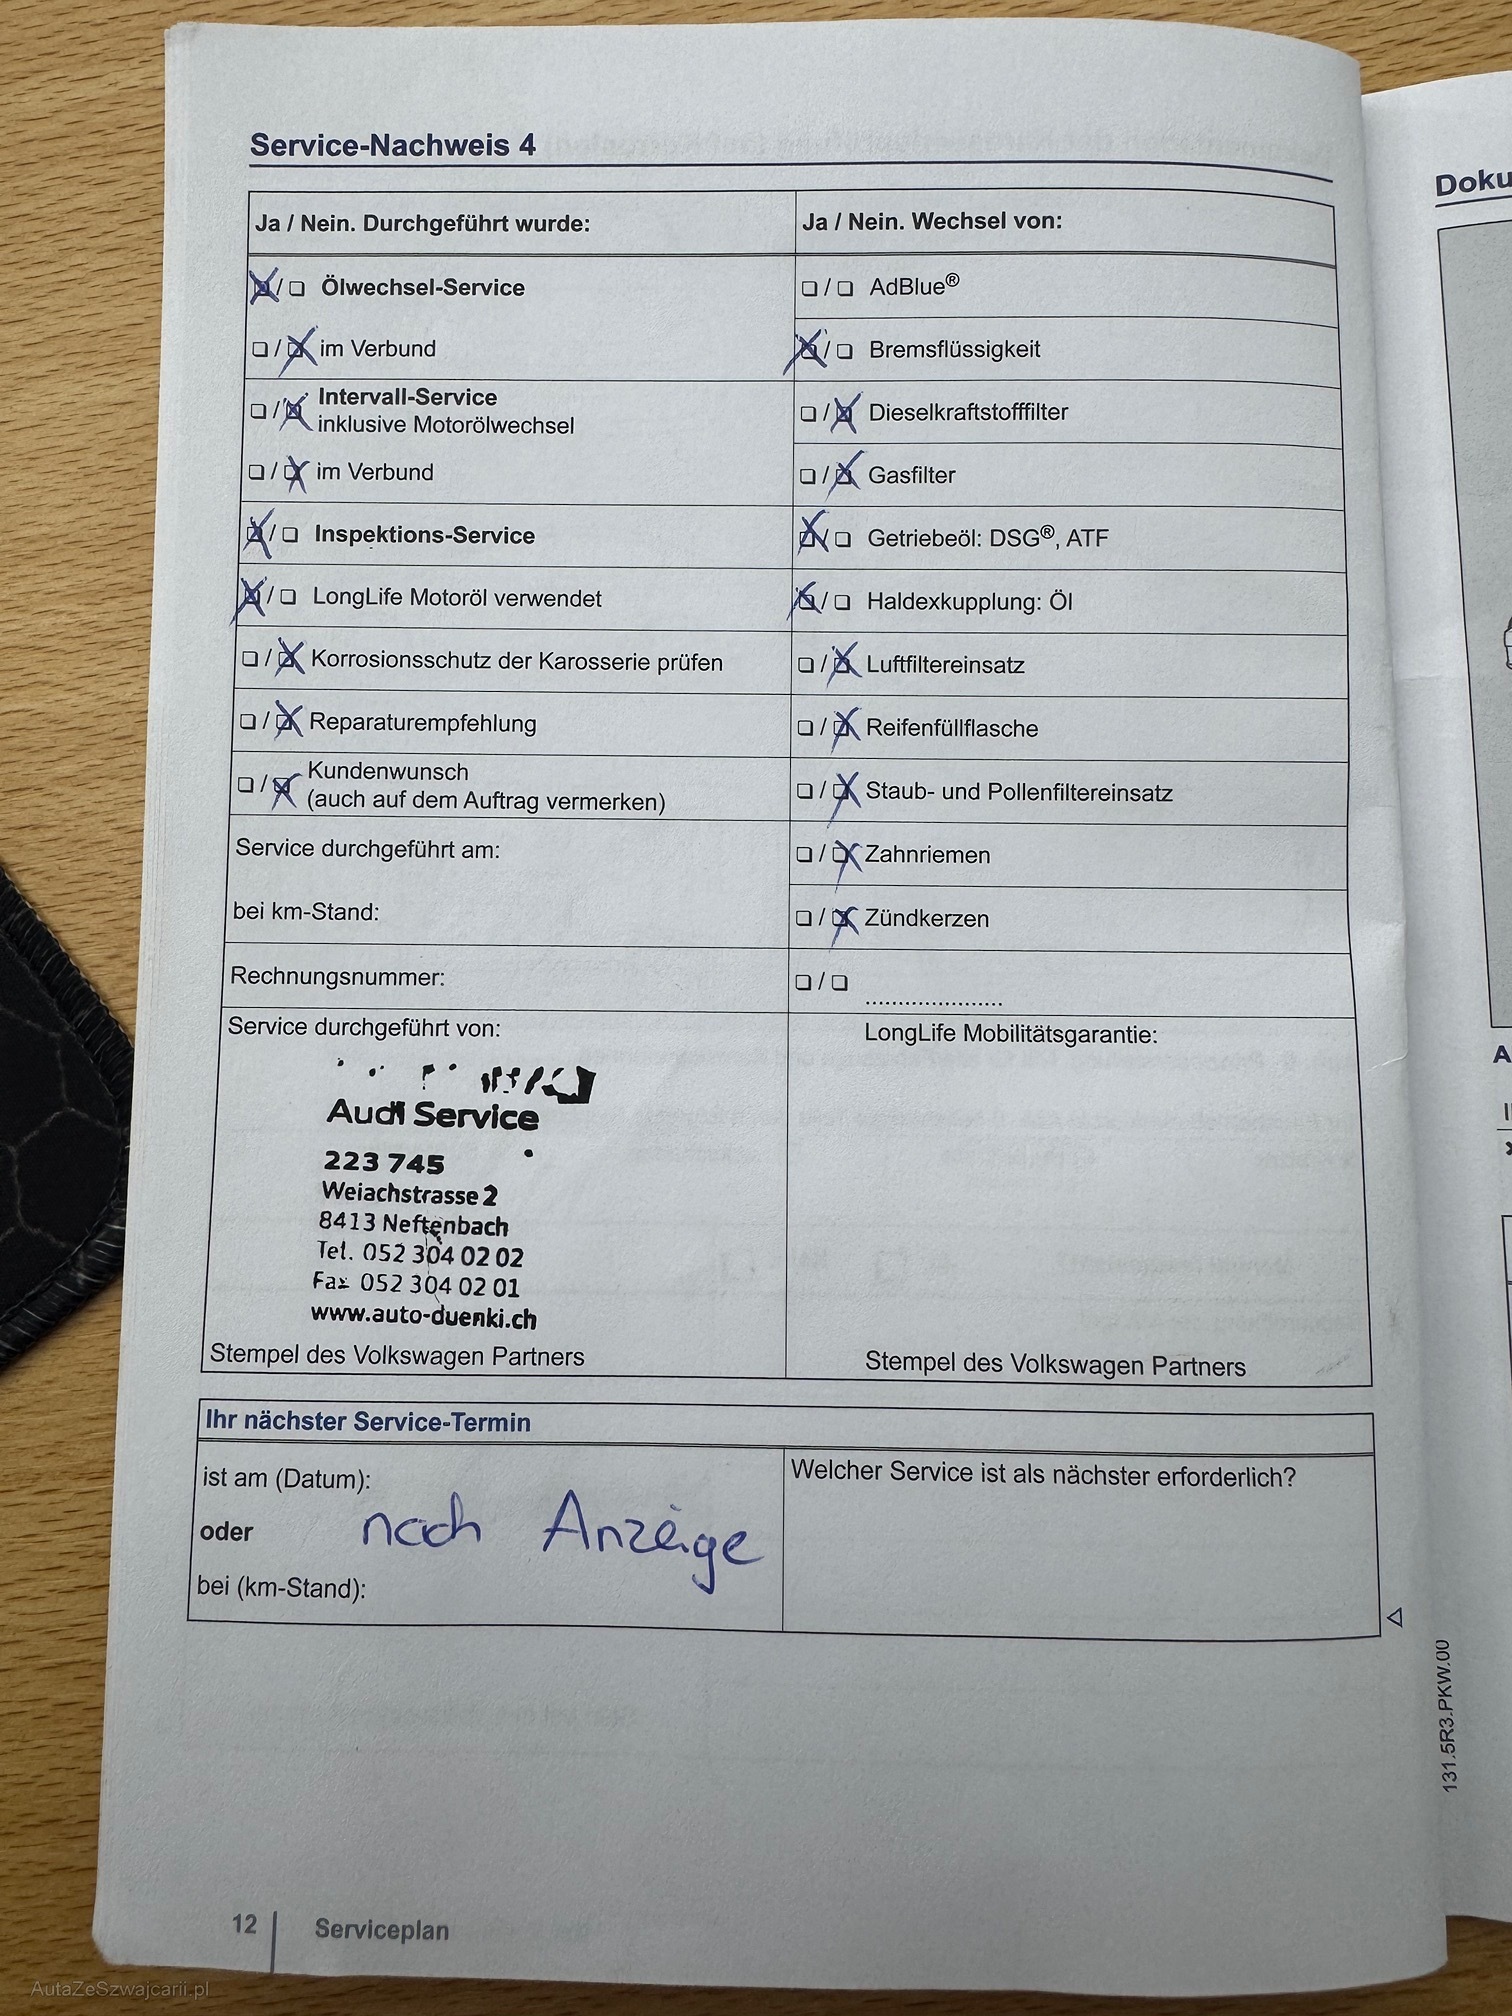 Service-Nachweis 4
Ja / Nein. Durchgeführt wurde:
Ja / Nein. Wechsel von:
☒/☐ Ölwechsel-Service
☐/☒ im Verbund
☐/☒ Intervall-Service
inklusive Motorölwechsel
☐/☒ im Verbund
☒/☐ Inspektions-Service
☒/☐ LongLife Motoröl verwendet
☐/☒ Korrosionsschutz der Karosserie prüfen
☐/☒ Reparaturempfehlung
☐/☒ Kundenwunsch
(auch auf dem Auftrag vermerken)
Service durchgeführt am:
bei km-Stand:
Rechnungsnummer:
☐/☐ AdBlue®
☒/☐ Bremsflüssigkeit
☐/☒ Dieselkraftstofffilter
☐/☒ Gasfilter
☒/☐ Getriebeöl: DSG®, ATF
☒/☐ Haldexkupplung: Öl
☐/☒ Luftfiltereinsatz
☐/☒ Reifenfüllflasche
☐/☒ Staub- und Pollenfiltereinsatz
☐/☒ Zahnriemen
☐/☒ Zündkerzen
☐/☐ .....................
Service durchgeführt von:
Audi Service
223 745
Weiachstrasse 2
8413 Neftenbach
Tel. 052 304 02 02
Fax 052 304 02 01
www.auto-duenki.ch
Stempel des Volkswagen Partners
LongLife Mobilitätsgarantie:
Stempel des Volkswagen Partners
Ihr nächster Service-Termin
ist am (Datum):
oder
nach Anzeige
bei (km-Stand):
Welcher Service ist als nächster erforderlich?
131.5R3.PKW.00
12 Serviceplan
Doku
AutaZeSzwajcarii.pl